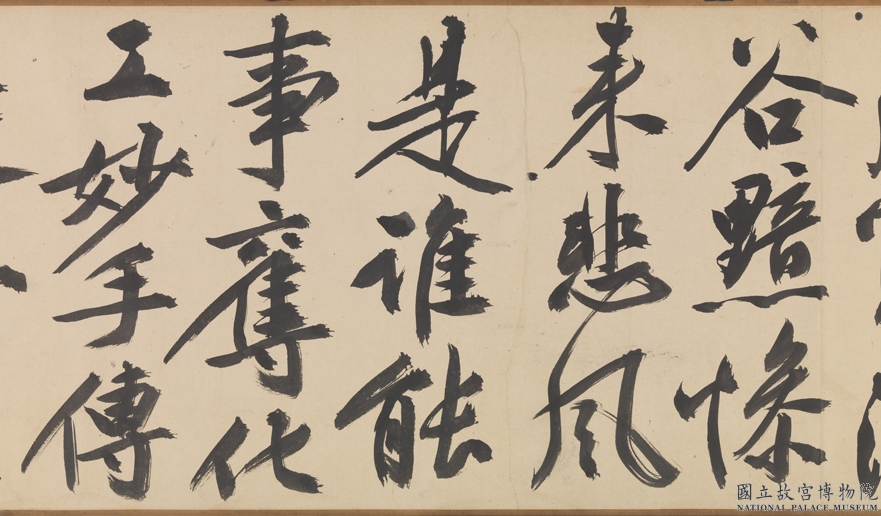 谷黯慘
来悲風
是誰能
事奪化
工妙手傳
國立故宮博物院
NATIONAL PALACE MUSEUM